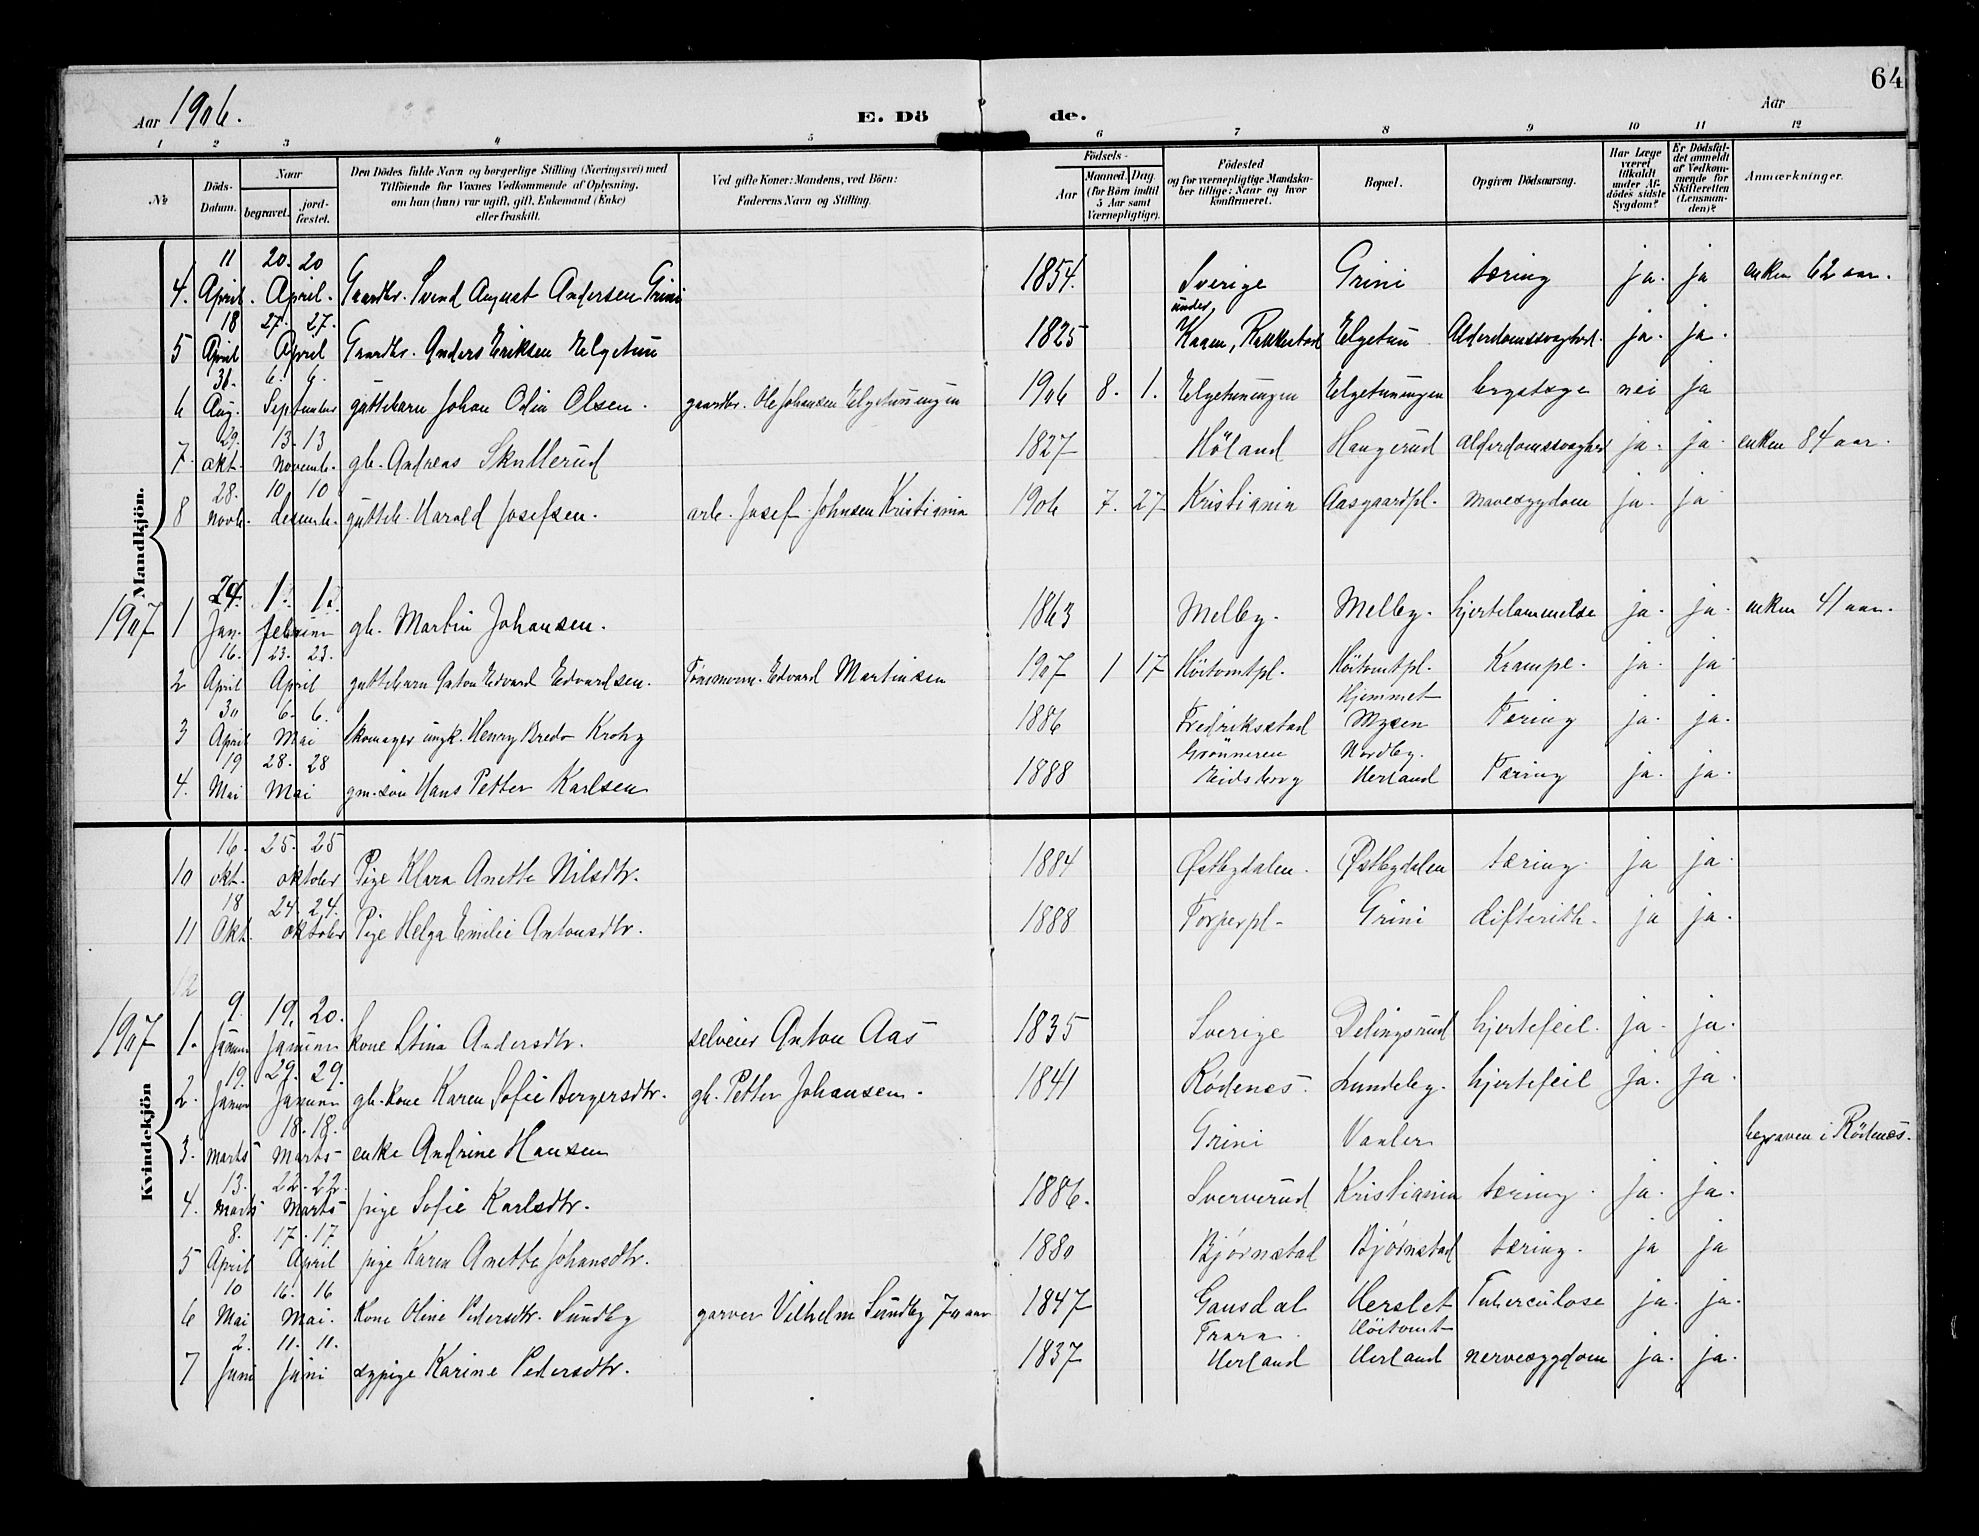 64
Aar 1906.
E. Dö de.
Aar
1 2 3 4 5 6 7 8 9 10 11 12
№
Döds-Datum.
Naar
begravet.
jordfæstet.
Den Dödes fulde Navn og borgerlige Stilling (Næringsvei) med Tilföiende for Voxnes Vedkommende af Oplysning, om han (hun) var ugift, gift, Enkemand (Enke) eller fraskilt.
Ved gifte Koner: Mandens, ved Börn: Faderens Navn og Stilling.
Födsels-
Aar
Maaned. Dag.
(for Börn indtil 5 Aar samt Værnepligtige).
Födested
og for værnepligtige Mandskaber tillige: Naar og hvor konfirmeret.
Bopæl.
Opgiven Dödsaarsag.
Har Læge været tilkaldt under Afdödes sidste Sygdom?
Er Dödsfaldet anmeldt af Vedkommende for Skifteretten (Lensmanden)?
Anmærkninger.
Mandkjön.
4. 11 April. 20. 20 April. Gaardbr. Svend August Andersen Grini 1854. Sverige Grini tæring ja. ja enken 62 aar.
5 18 April 27. 27. April Gaardbr. Anders Eriksen Elgetun 1825 under Kaaen, Rakkestad Elgetun Alderdomssvaghed. ja. ja.
6 31. Aug. 6. 6. September guttebarn Johan Odin Olsen. gaardbr. Ole Johansen Elgetunungen 1906 8. 1. Elgetunungen Elgetunungen brystsyge nei ja
7. 29. okt. 13. 13 novemb. gb. Andreas Skullerud 1827 Höland Haugerud alderdomssvaghed ja. ja. enken 84 aar.
8 28. novb. 10 10 desemb. gutteb. Harald Josefsen. arb. Josef Johnsen Kristiania 1906 7. 27 Kristiania Aasgaardpl. mavesygdom ja. ja
1907 1 24. Jan. 1. 1. februar gb. Martin Johansen. 1863 Melby. Melby. hjertelammelse ja. ja. enken 41 aar.
2 16. April 23. 23. April guttebarn Anton Edvard Edvardsen. Tömmerm. Edvard Martinsen 1907 1 17 Höitomtpl. Höitomtpl. Krampe. ja. ja.
3 30 April 6. 6. Mai Skomager ungk. Henry Bredo Krohg 1886 Fredriksstad Hjemmet Mysen Tæring ja. ja.
4. 19 Mai 28. 28 Mai gm. sön Hans Petter Karlsen 1888 Grönneren Eidsberg Nordby. Herland Tæring ja. ja.
Kvindekjön
10 16. okt. 25. 25 oktober Pige Klara Anette Nilsdtr. 1884 Østbydalen. Østbydalen tæring. ja ja.
11 18 Okt. 24 24. oktober Pige Helga Emilie Antonsdtr. 1888 Torperpl. Grini difterith. ja ja.
12
1907 1. 9. Januar 19. 20. Januar kone Stina Andersdtr. selveier Anton Aas 1835 Sverige Delingsrud hjertefeil. ja. ja.
2. 19. Januar 29. 29. Januar gb. kone Karen Sofie Bergersdtr. gb. Petter Johansen. 1841 Rödenes. Lundeby. hjertefeil ja. ja.
3. marts 18. 18. Marts enke Andrine Hansen Grini Vanler begraven i Rödenes.
4. 13. marts 22. 22. Marts pige Sofie Karlsdtr. 1886. Sververud Kristiania tæring. ja. ja.
5 8. April 17. 17. April pige Karen Anette Johansdtr. 1880 Björnstad Björnstad tæring. ja ja
6 10 Mai 16. 16 Mai. Kone Oline Pedersdtr. Sundby garver Vilhelm Sundby 70 aar 1847 Gausdal Herslet Tuberculose ja. ja.
7 2. Juni 11. 11. Juni sypige Karine Pedersdtr. 1837 Trara Herland Höitomt Herland nervesygdom ja. ja.